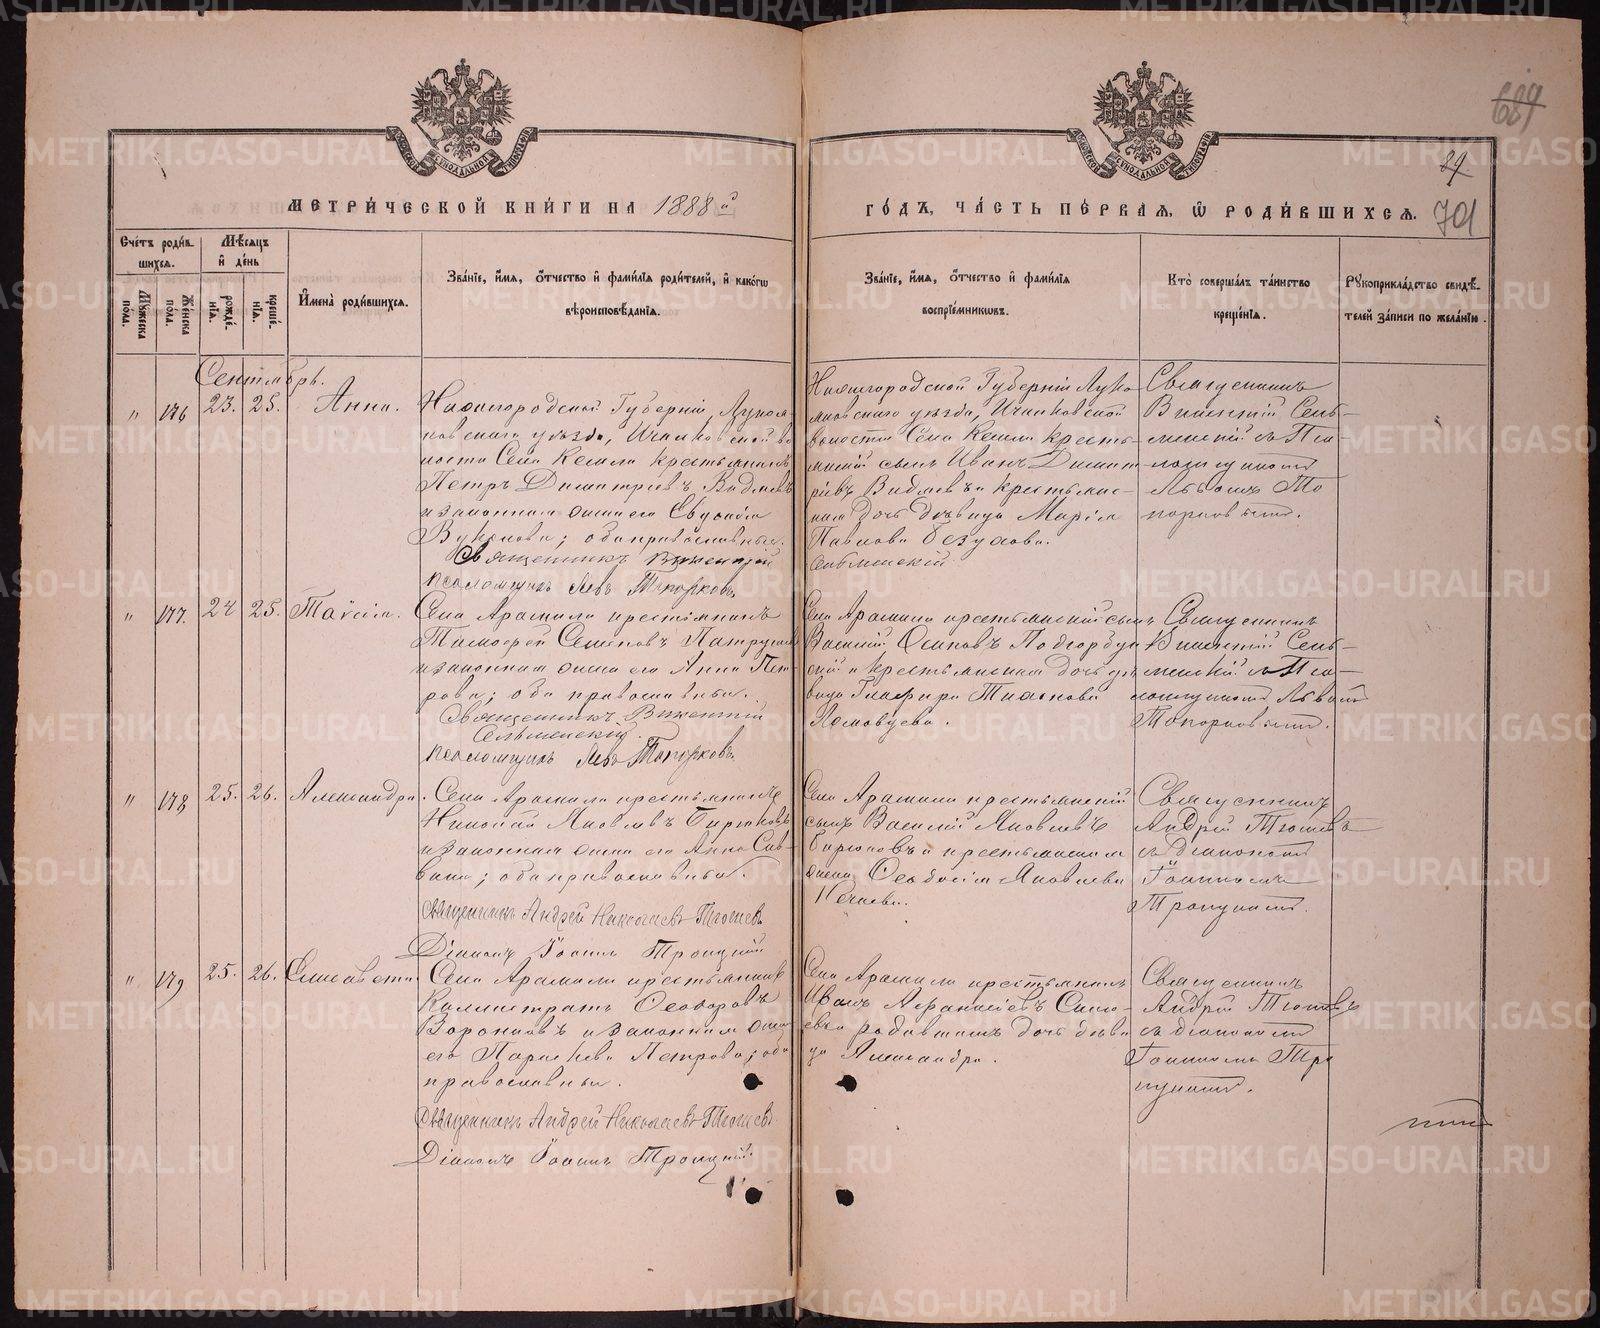 METRIKI.GASO-URAL.RU
689
89
МЕТРИ́ЧЕСКОЙ КНИ́ГИ НА 1888 й
ГО́ДЪ, ЧА́СТЬ ПЕ́РВАЯ, Ѡ РОДИ́ВШИХСЯ. 701
Сче́тъ роди́в-
шихся.
Му́жеска по́ла.
Же́нска по́ла.
Мѣ́сяцъ
и҆ де́нь
рожде́-
нїя.
креще́-
нїя.
И҆мена̀ роди́вшихся.
Зва́нїе, и҆́мя, ѻ҆́тчество и҆ фами́лїя роди́телей, и҆ како́гѡ
вѣроисповѣ́данїя.
Зва́нїе, и҆́мя, ѻ҆́тчество и҆ фами́лїя
воспрїе́мникѡвъ.
Кто̀ соверша́лъ та́инство
креще́нїя.
Рꙋкоприкла́дство свидѣ́-
телей за́писи по жела́нїю.
Сентябрь.
" 176 23. 25. Анна.
Нижегородской Губерніи, Лукоя-
новскаго уѣзда, Ичалковской во
лости Села Кемли крестьянинъ
Петръ Димитріевъ Видяевъ
и законная жена его Евдокія
; оба православные.
Священникъ Викентій
Сельменскій
Псаломщикъ Левъ Топорковъ
Нижегородской Губерніи Луко
яновскаго уѣзда, Ичалковской
волости Села Кемли кресть-
янскій сынъ Иванъ Димит
ріевъ Видяевъ и крестьянс-
кая дочь дѣвица Марія
Павлова
Священникъ
Викентій Сель-
менскій съ Пса-
ломщикомъ
Львомъ То
порковымъ.
" 177. 24 25. Таисія.
Села Арамили крестьянинъ
Тимофей Семеновъ Патрушевъ
и законная жена его Анна Пет-
рова; оба православные.
Священникъ Викентій
Сельменскій.
Псаломщикъ Левъ Топорковъ
Села Арамили крестьянскій сынъ
Василій Осиповъ Подгорбун
скій и крестьянская дочь дѣ
вица Глафира
Священникъ
Викентій Сель-
менскій съ Пса-
ломщикомъ Львомъ
Топорковымъ.
" 178 25. 26. Александра.
Села Арамили крестьянинъ
Николай Яковлевъ Бирюковъ
и законная жена его Анна Сав-
вина; оба православные.
Священникъ Андрей Николаевъ Тюшевъ
Діаконъ Іоаннъ Троицкій
Села Арамили крестьянскій
сынъ Василій Яковлевъ
Бирюковъ и крестьянская
жена Ѳеодосія Яковлева
Нечаева.
Священникъ
Андрей Тюшевъ
съ діакономъ
Іоанномъ
Троицкимъ.
" 179 25. 26. Елисавета.
Села Арамили крестьянинъ
Каллистратъ Ѳеодоровъ
Воронковъ и законная жена
его Параскева Петрова; оба
православные.
Священникъ Андрей Николаевъ Тюшевъ
Діаконъ Іоаннъ Троицкій.
Села Арамили крестьянинъ
Иванъ Аѳанасіевъ
и дочь дѣви
ца Александра.
Священникъ
Андрей Тюшевъ
съ діакономъ
Іоанномъ Тро
ицкимъ.